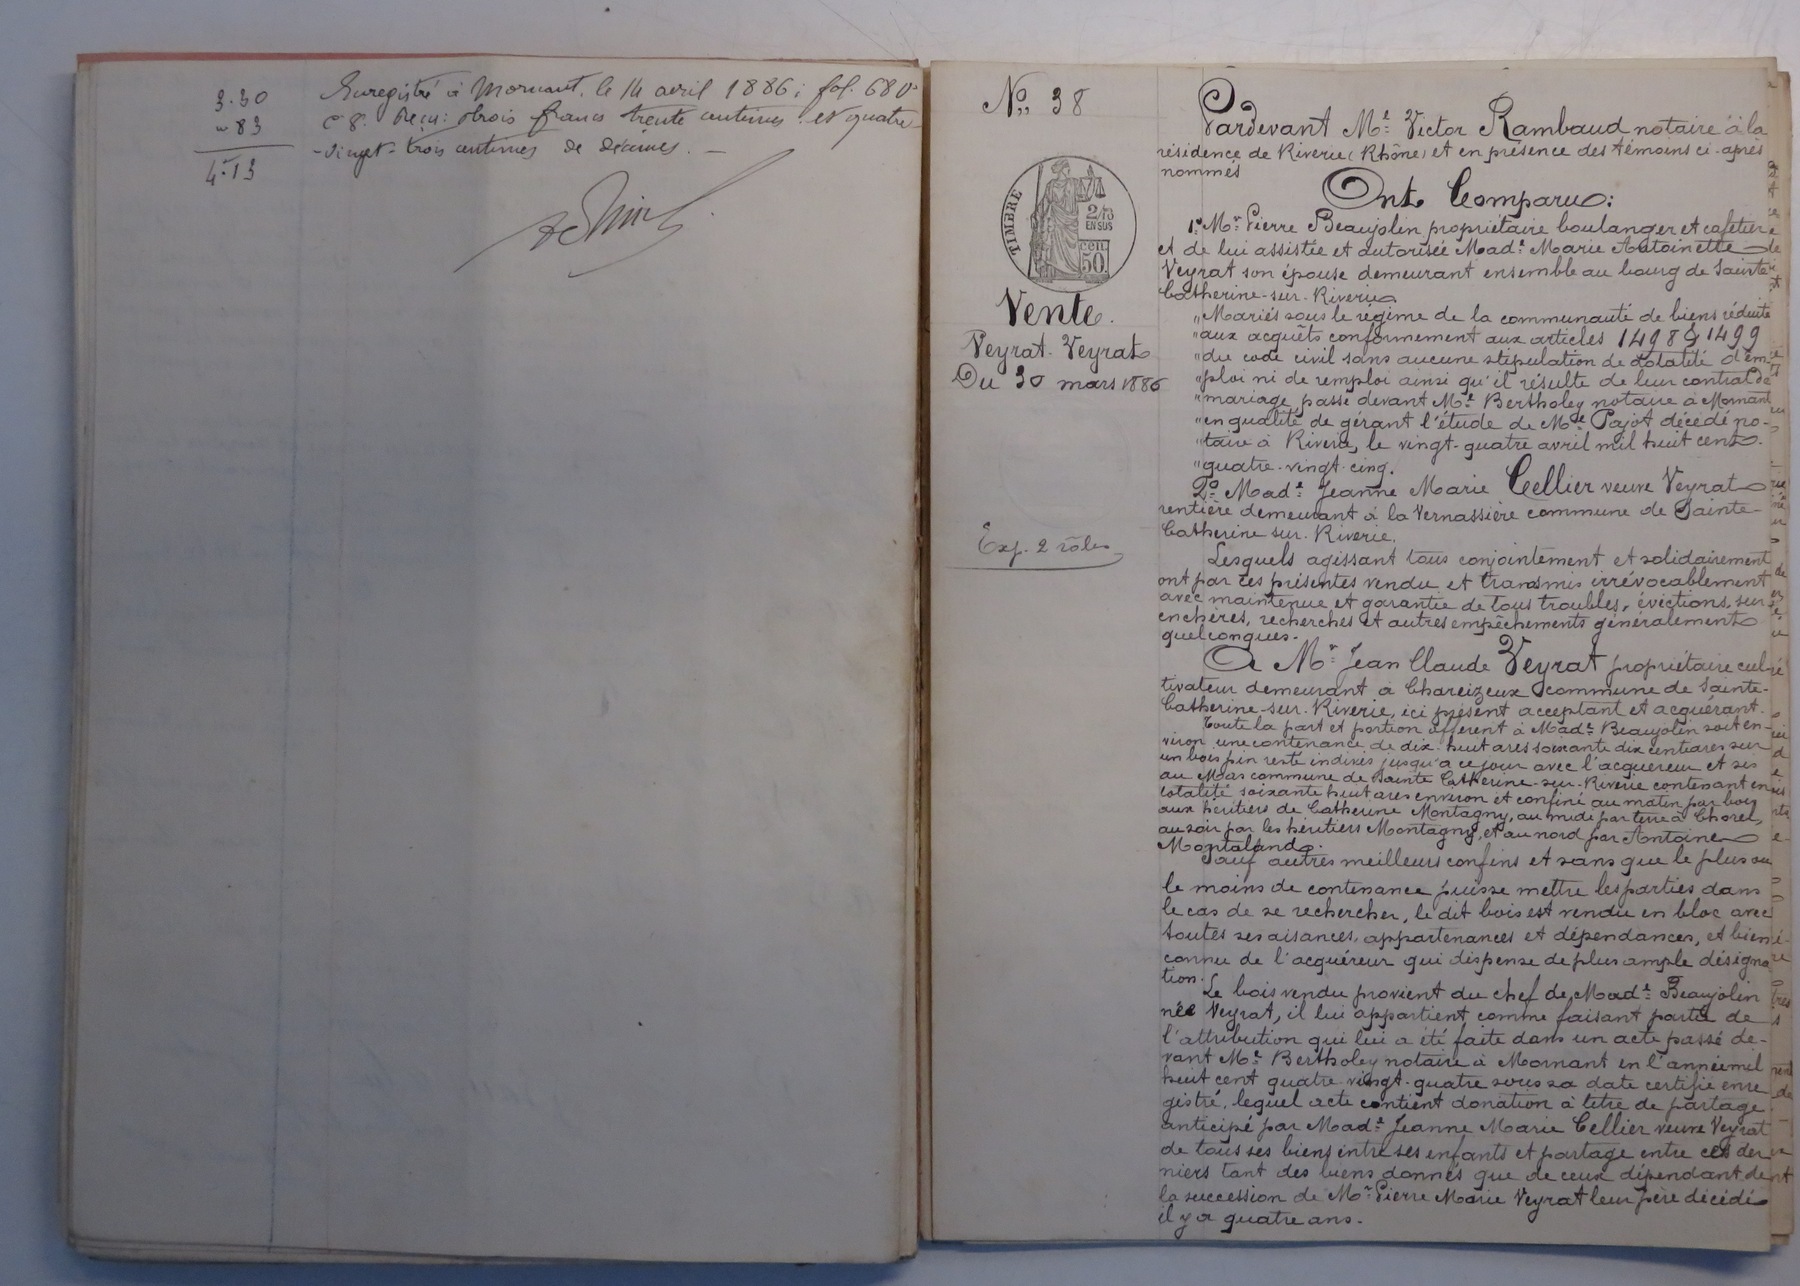 3.30
" 83
4.13
Enregistré à Mornant, le 14 avril 1886; fol. 68 Vo
c 8. Reçu: trois francs trente centimes et quatre-
-vingt-trois centimes de décimes. —
No 38
TIMBRE
2/10
EN SUS
cen
50
Vente.
Veyrat-Veyrat
Du 30 mars 1886
Exp. 2 rôles
Pardevant Me Victor Rambaud notaire à la
résidence de Riverie (Rhône) et en présence des témoins ci-après
nommés
Ont Comparu:
1o Mr Pierre Beaujolin propriétaire boulanger et cafetier
et de lui assistée et autorisée Made Marie Antoinette
Veyrat son épouse demeurant ensemble au bourg de Sainte
Catherine-sur-Riverie
"Mariés sous le régime de la communauté de biens réduite
"aux acquêts conformément aux articles 1498 & 1499
"du code civil sans aucune stipulation de dotalité d'em-
"ploi ni de remploi ainsi qu'il résulte de leur contrat de
"mariage passé devant Me Bertholey notaire à Mornant
"en qualité de gérant l'étude de Me Pajot décédé no-
"taire à Riverie, le vingt-quatre avril mil huit cent
"quatre-vingt-cinq.
2o Made Jeanne Marie Cellier veuve Veyrat
rentière demeurant à la Vernassière commune de Sainte-
Catherine sur-Riverie.
Lesquels agissant tous conjointement et solidairement
ont par ces présentes vendu et transmis irrévocablement
avec maintenue et garantie de tous troubles, évictions, sur-
enchères, recherches et autres empêchements généralement
quelconques.
A Mr Jean Claude Veyrat propriétaire cul-
tivateur demeurant à Chareizeux commune de Sainte-
Catherine-sur-Riverie, ici présent acceptant et acquérant.
Toute la part et portion afférent à Made Beaujolin soit en-
viron une contenance de dix-huit ares soixante dix centiares sur
un bois pin resté indivis jusqu'à ce jour avec l'acquéreur et sis
au Mas commune de Sainte Catherine-sur-Riverie contenant en
totalité soixante huit ares environ et confiné au matin par bois
aux héritiers de Catherine Montagny, au midi par terre à Chorel,
au soir par les héritiers Montagny, et au nord par Antoine
Montaland.
Sauf autres meilleurs confins et sans que le plus ou
le moins de contenance puisse mettre les parties dans
le cas de se rechercher, le dit bois est vendu en bloc avec
toutes ses aisances, appartenances et dépendances, et bien
connu de l'acquéreur qui dispense de plus ample désigna
tion.
Le bois vendu provient du chef de Made Beaujolin
née Veyrat, il lui appartient comme faisant partie de
l'attribution qui lui a été faite dans un acte passé de-
vant Me Bertholey notaire à Mornant en l'année mil
huit cent quatre-vingt-quatre sous sa date certifié enre
gistré, lequel acte contient donation à titre de partage
anticipé par Made Jeanne Marie Cellier veuve Veyrat
de tous ses biens entre ses enfants et partage entre ces der
niers tant des biens donnés que de ceux dépendant de
la succession de Mr Pierre Marie Veyrat leur père décédé
il y a quatre ans.